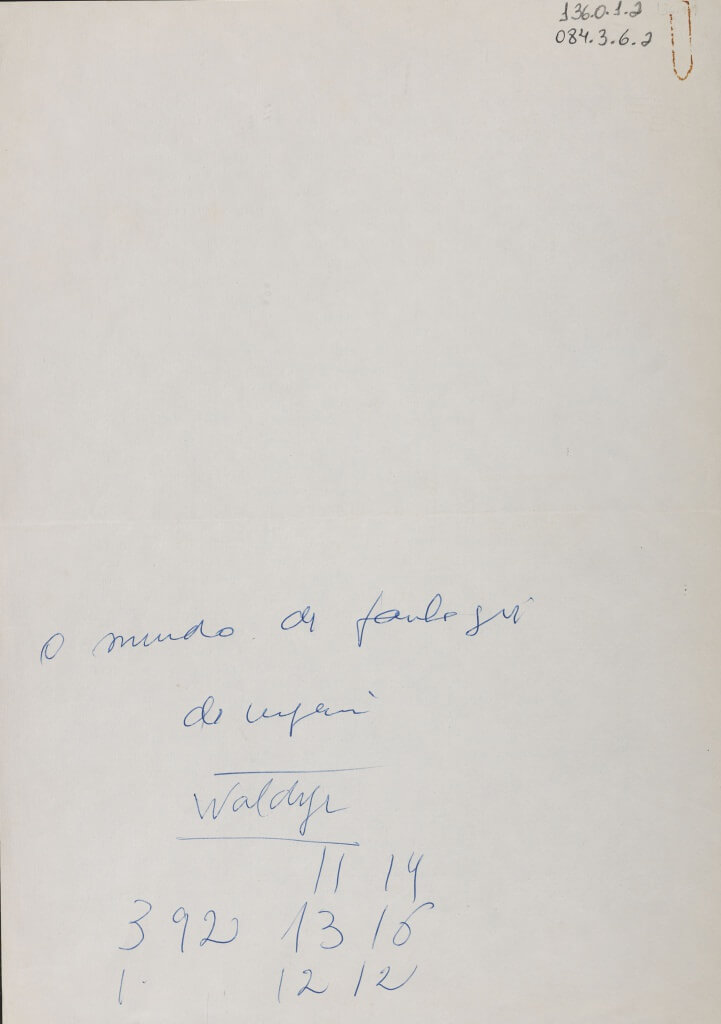 136.0.1.2
084.3.6.2
O mundo de
de
Waldyr
11 14
392 13 16
1. 12 12